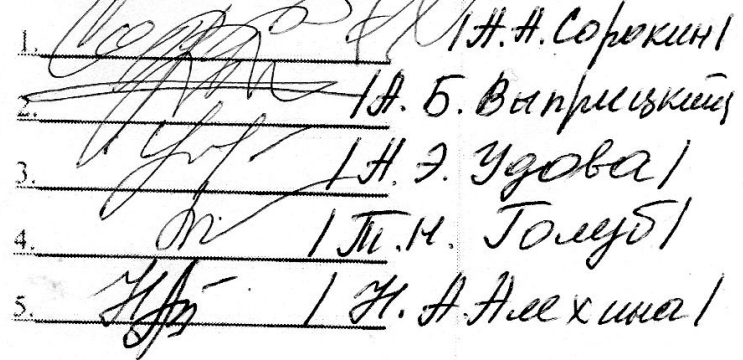 1. /А.А. Сорокин/
2. /А. Б. Выприцкий
3. /А. Э. Удова/
4. /Т.Н. Голуб/
5. /Н. А Алехина/